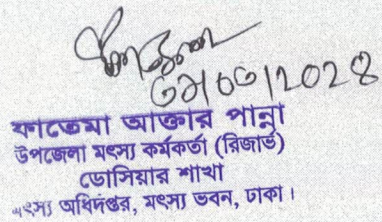 ৩১/০৩/২০২৪
ফাতেমা আক্তার পান্না
উপজেলা মৎস্য কর্মকর্তা (রিজার্ভ)
ডোসিয়ার শাখা
মৎস্য অধিদপ্তর, মৎস্য ভবন, ঢাকা।